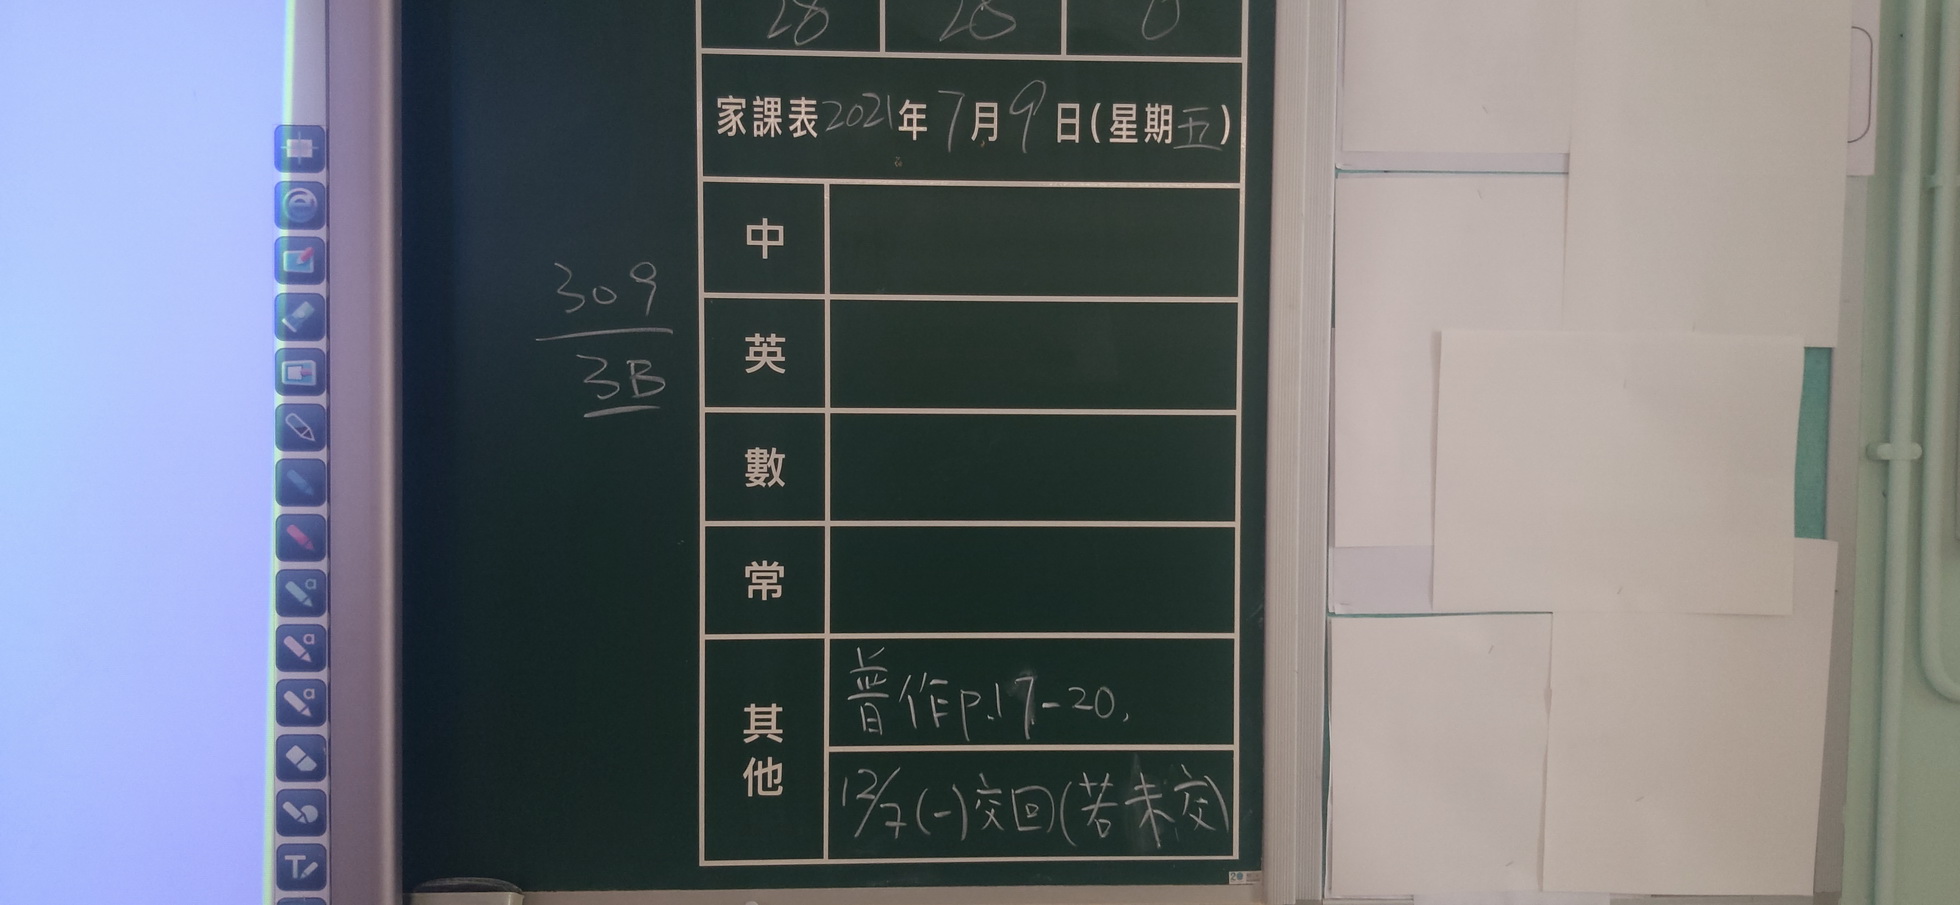 28 28 0
家課表2021年7月9日(星期五)
309
3B
中
英
數
常
其他
普作p.17-20.
12/7(一)交回(若未交)